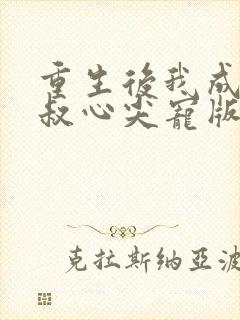 重生後我成
叔心尖寵版
克拉斯纳亞波